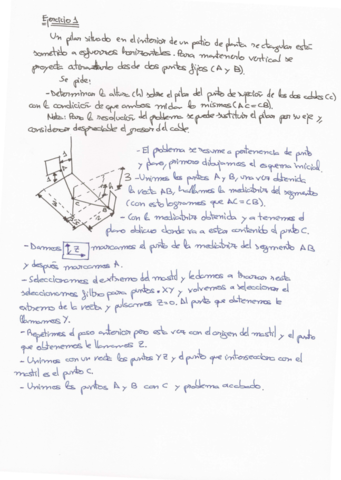 Ejercicio 1
Un pilar situado en el interior de un patio de planta rectangular está
sometido a esfuerzos horizontales. Para mantenerlo vertical se
proyecta atirantarlo desde dos puntos fijos (A y B).
Se pide:
- Determinar la altura (h) sobre el pilar del punto de sujeción de los dos cables (C)
con la condición de que ambos midan lo mismo (AC=CB).
Nota: Para la resolución del problema se puede sustituir el pilar por su eje y
considerar despreciable el grosor del cable.
- El problema se resume a pertenencia de punto
y plano, primero dibujamos el esquema inicial.
- Unimos los puntos A y B, una vez obtenida
la recta AB, hallamos la mediatriz del segmento
(con esto logramos que AC=CB).
- Con la mediatriz obtenida ya tenemos el
plano oblicuo donde va a estar contenido el punto C.
- Damos Z marcamos el punto de la mediatriz del segmento AB
y después marcamos A.
- Seleccionamos el extremo del mastil y le damos a trazar recta
seleccionamos filtro para puntos .XY y volvemos a seleccionar el
extremo de la recta y pulsamos Z=0. Al punto que obtenemos le
llamamos Y.
- Repetimos el paso anterior pero esta vez con el origen del mastil y el punto
que obtenemos le llamamos Z.
- Unimos con una recta los puntos YZ y el punto que intersecciona con el
mastil es el punto C.
- Unimos los puntos A y B con C y problema acabado.